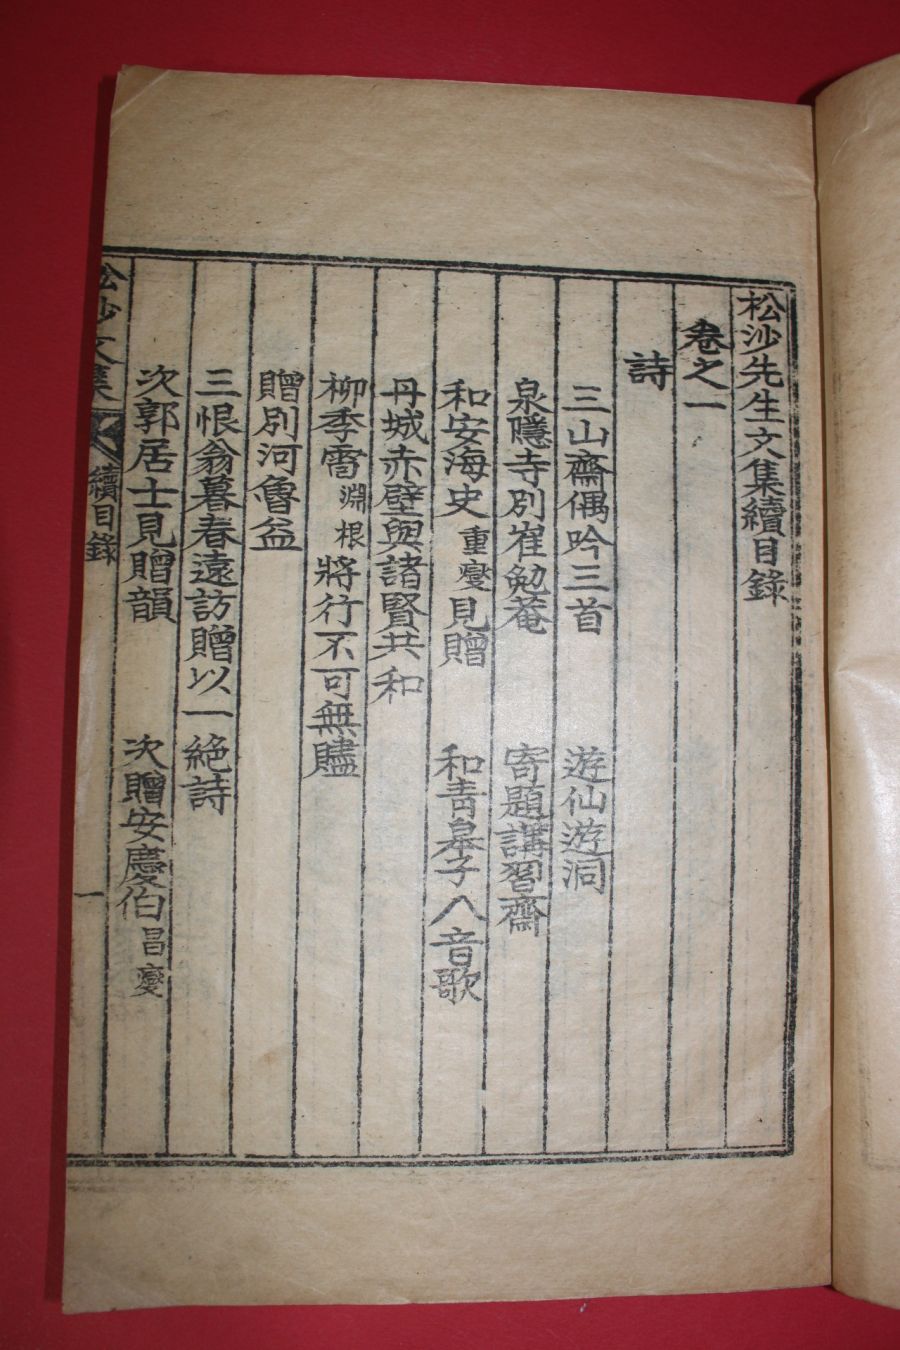 松沙先生文集續目錄
卷之一
詩
三山齋偶吟三首 遊仙遊洞
泉隱寺別崔勉菴 寄題講習齋
和安海史重燮見贈 和靑皋子八音歌
丹城赤壁與諸賢共和
柳季霄淵根將行不可無贐
贈別河魯益
三恨翁暮春遠訪贈以一絶詩
次郭居士見贈韻 次贈安慶伯昌燮
松沙文集 續目錄 一